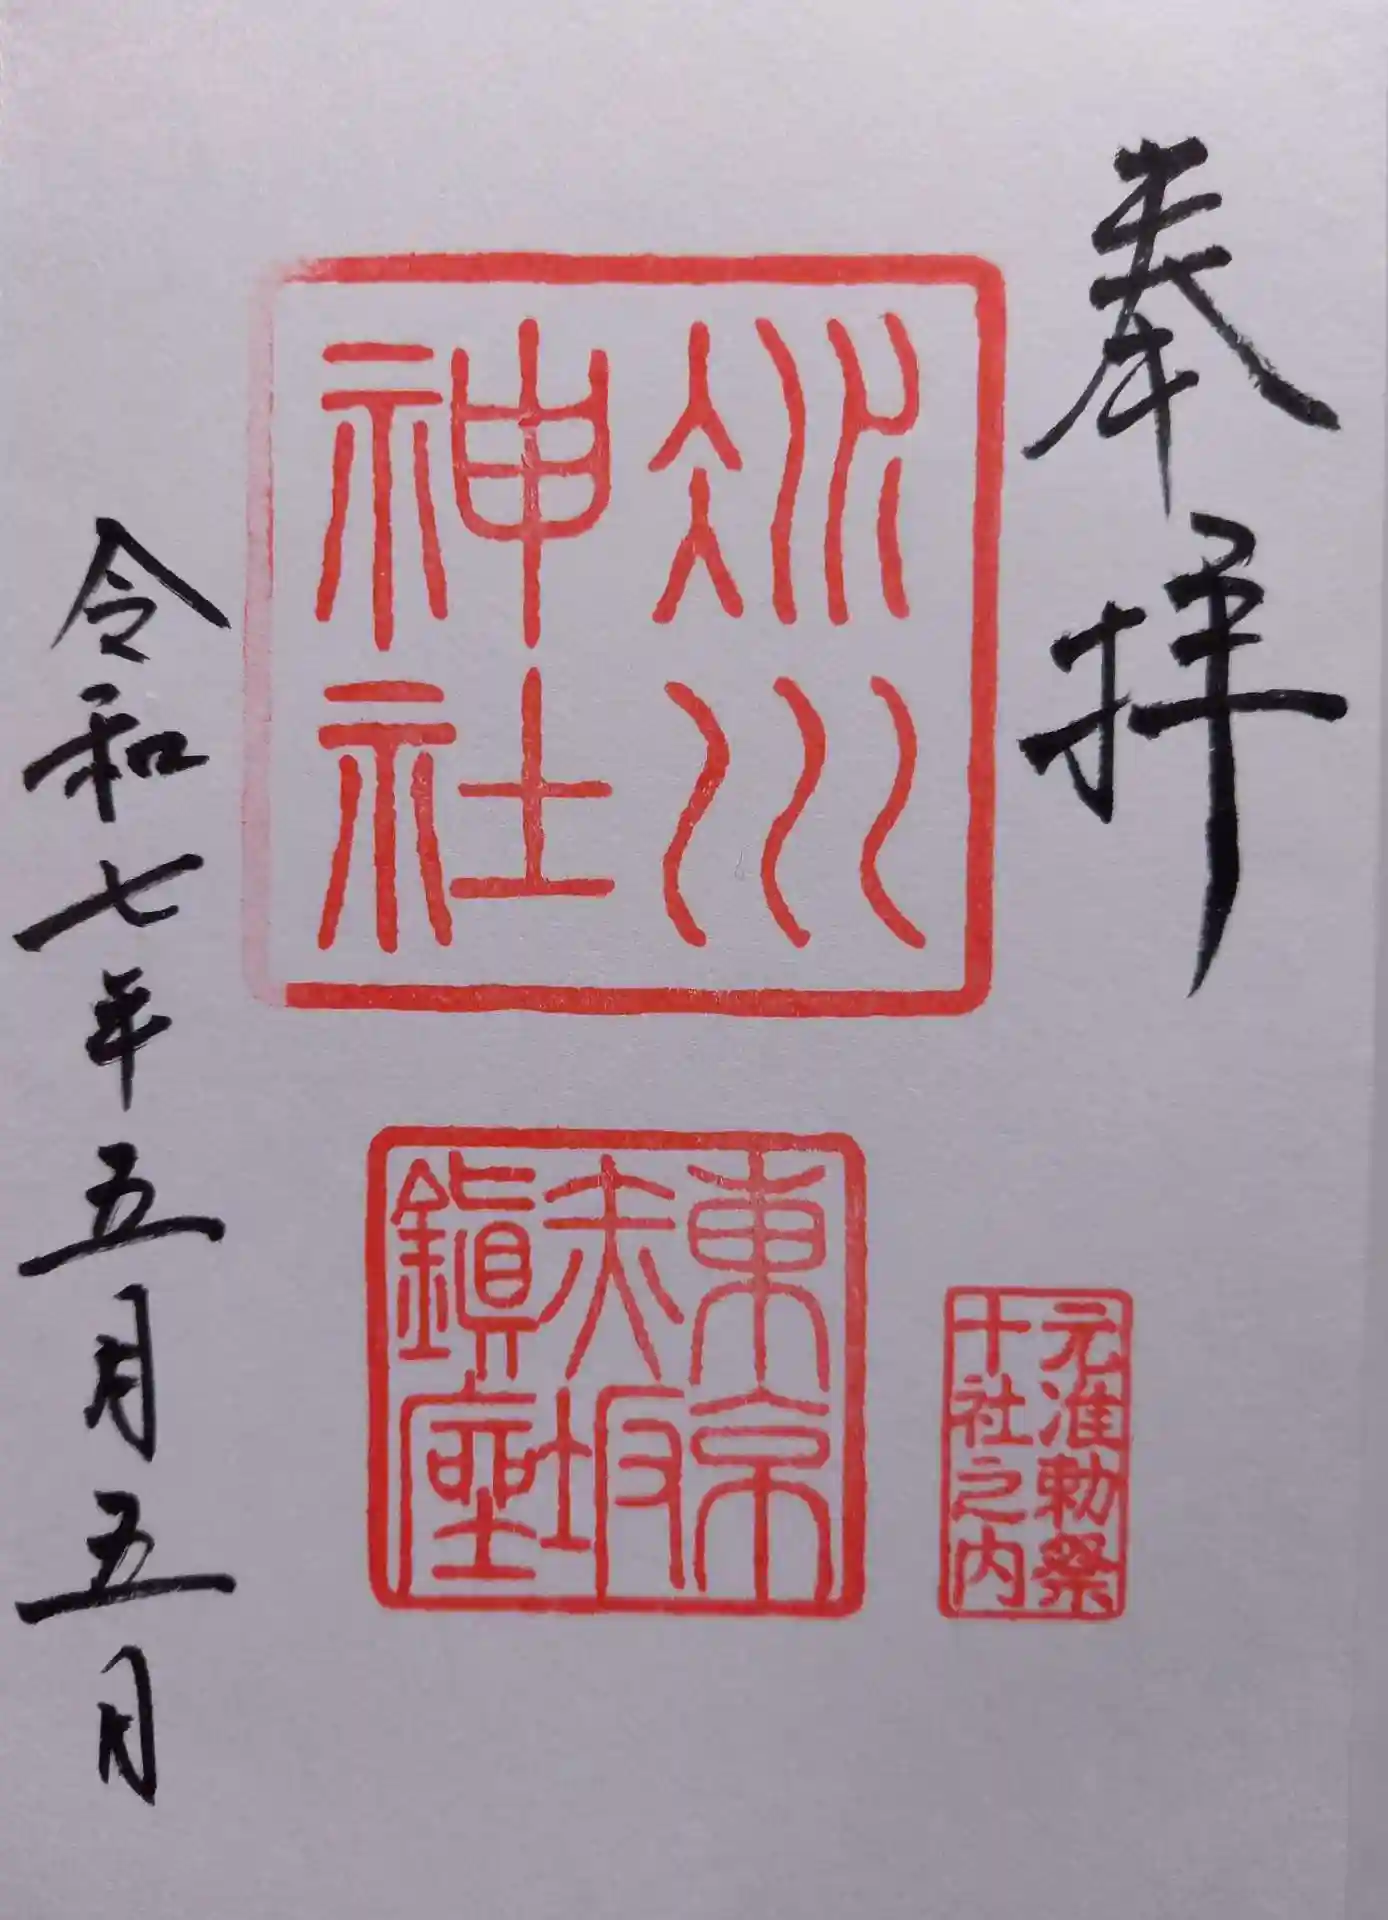 奉拝
元准勅祭
十社之内
冰川
神社
東京
赤坂
鎭座
令和七年五月五日